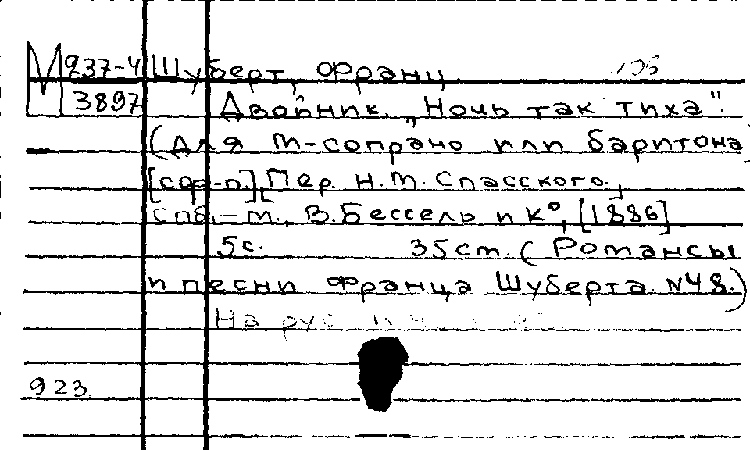 М 937-4 Шуберт, Франц
3897 Двойник. „Ночь так тиха".
(Для м-сопрано или баритона)
[с ф-п.] Пер. Н.М. Спасского.,
Спб.–М., В. Бессель и К°, [1886]
5с. 35см. (Романсы
и песни Франца Шуберта №48.)
На рус.
923